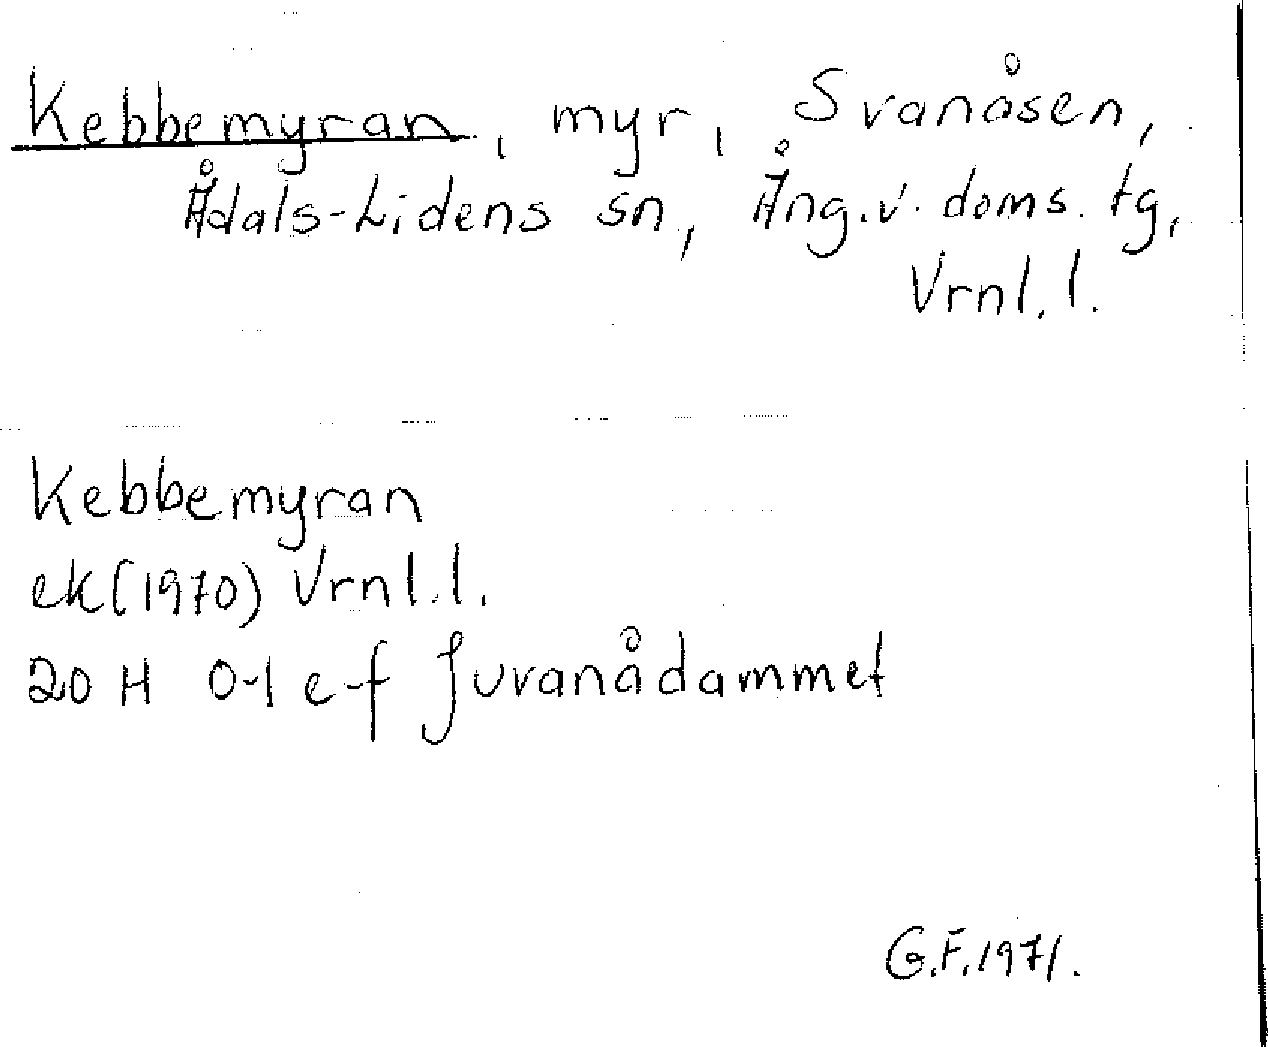 Kebbemyran, myr, Svanåsen,
Ådals-Lidens sn, Ång.v. doms. tg,
Vrnl. l.
Kebbemyran
ek (1970) Vrnl. l.
20 H 0-1 e-f Juvanådammet
G.F. 1971.